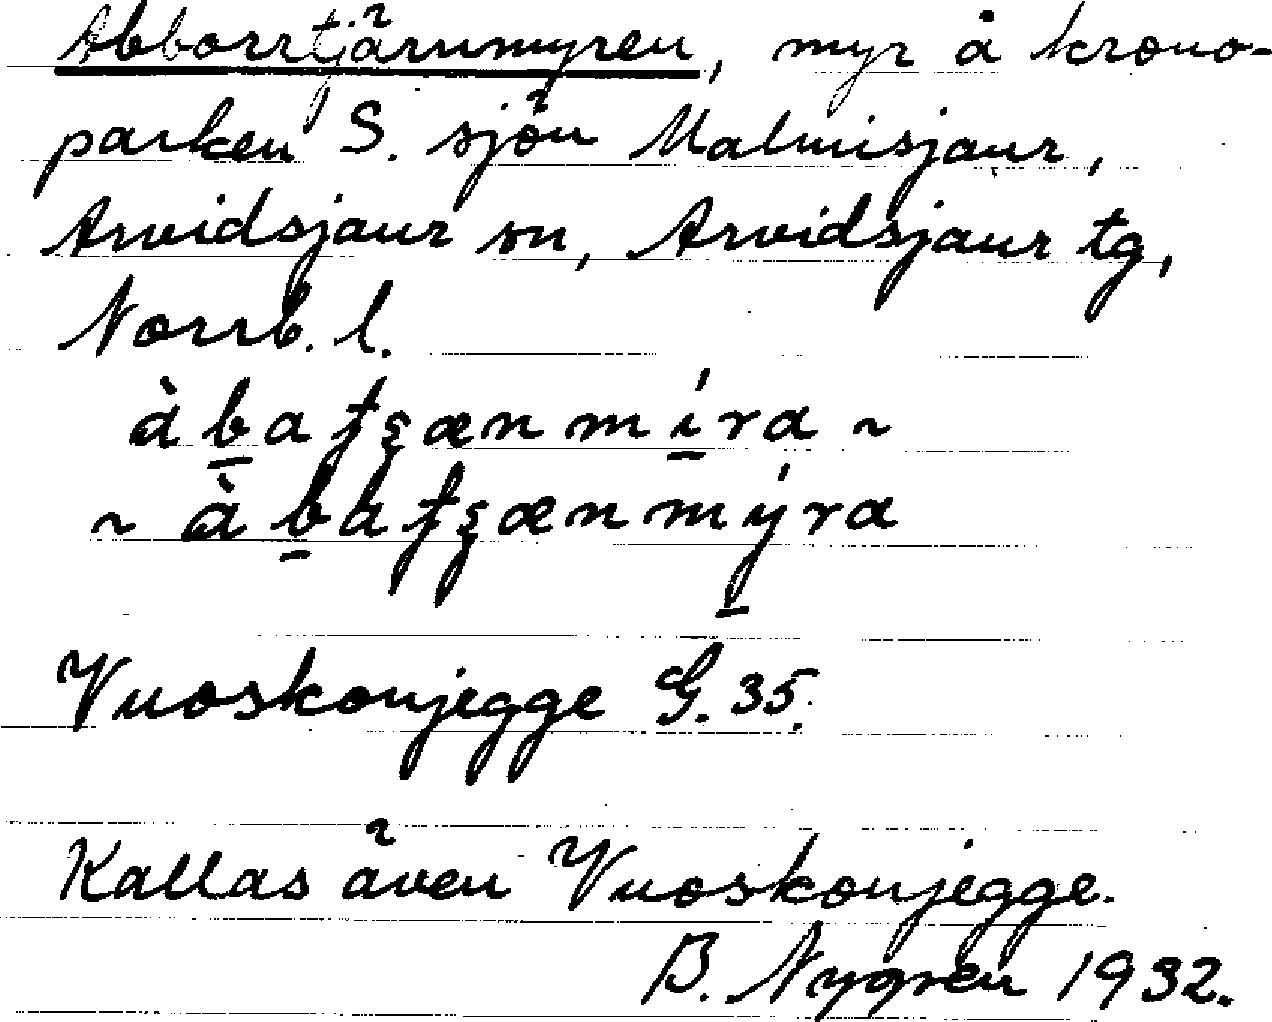 Abborrtjärnmyren, myr å krono-
parken S. sjön Malmisjaur,
Arvidsjaur sn, Arvidsjaur tg,
Norrb. l.
Vuoskonjegge G. 35.
Kallas även Vuoskonjegge.
B. Nygren 1932.